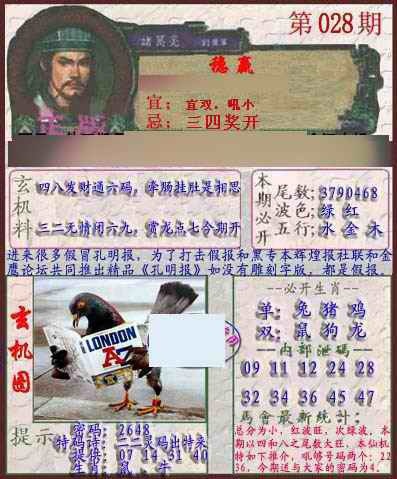 第028期
諸葛亮
稳赢
宜：宜双．吼小
忌：三四奖开
玄机料
四八发财通六码，牵肠挂肚是相思
三二无情闭六九，赏龙点七今期开
本期必开
尾数：3790468
波色：绿 红
五行：水 金 木
进来很多假冒孔明报，为了打击假报和黑专本辉煌报社联和金
鹰论坛共同推出精品《孔明报》如没有雕刻字版，都是假报．
玄机图
LONDON
A
--必开生肖--
单：兔 猪 鸡
双：鼠 狗 龙
--内部泄码--
09 11 12 24 28
32 34 36 45 47
马會最新统计：
总分为小，红波旺，次绿波，本
期以四和八之尾数大旺，本仙机
特如下推介，吼够号码两个：22
36，今期送与大家的密码为4．
提示
密码：2648
特码诗：二二灵码出特来
提供：07 14 31 40
生肖：鼠、牛